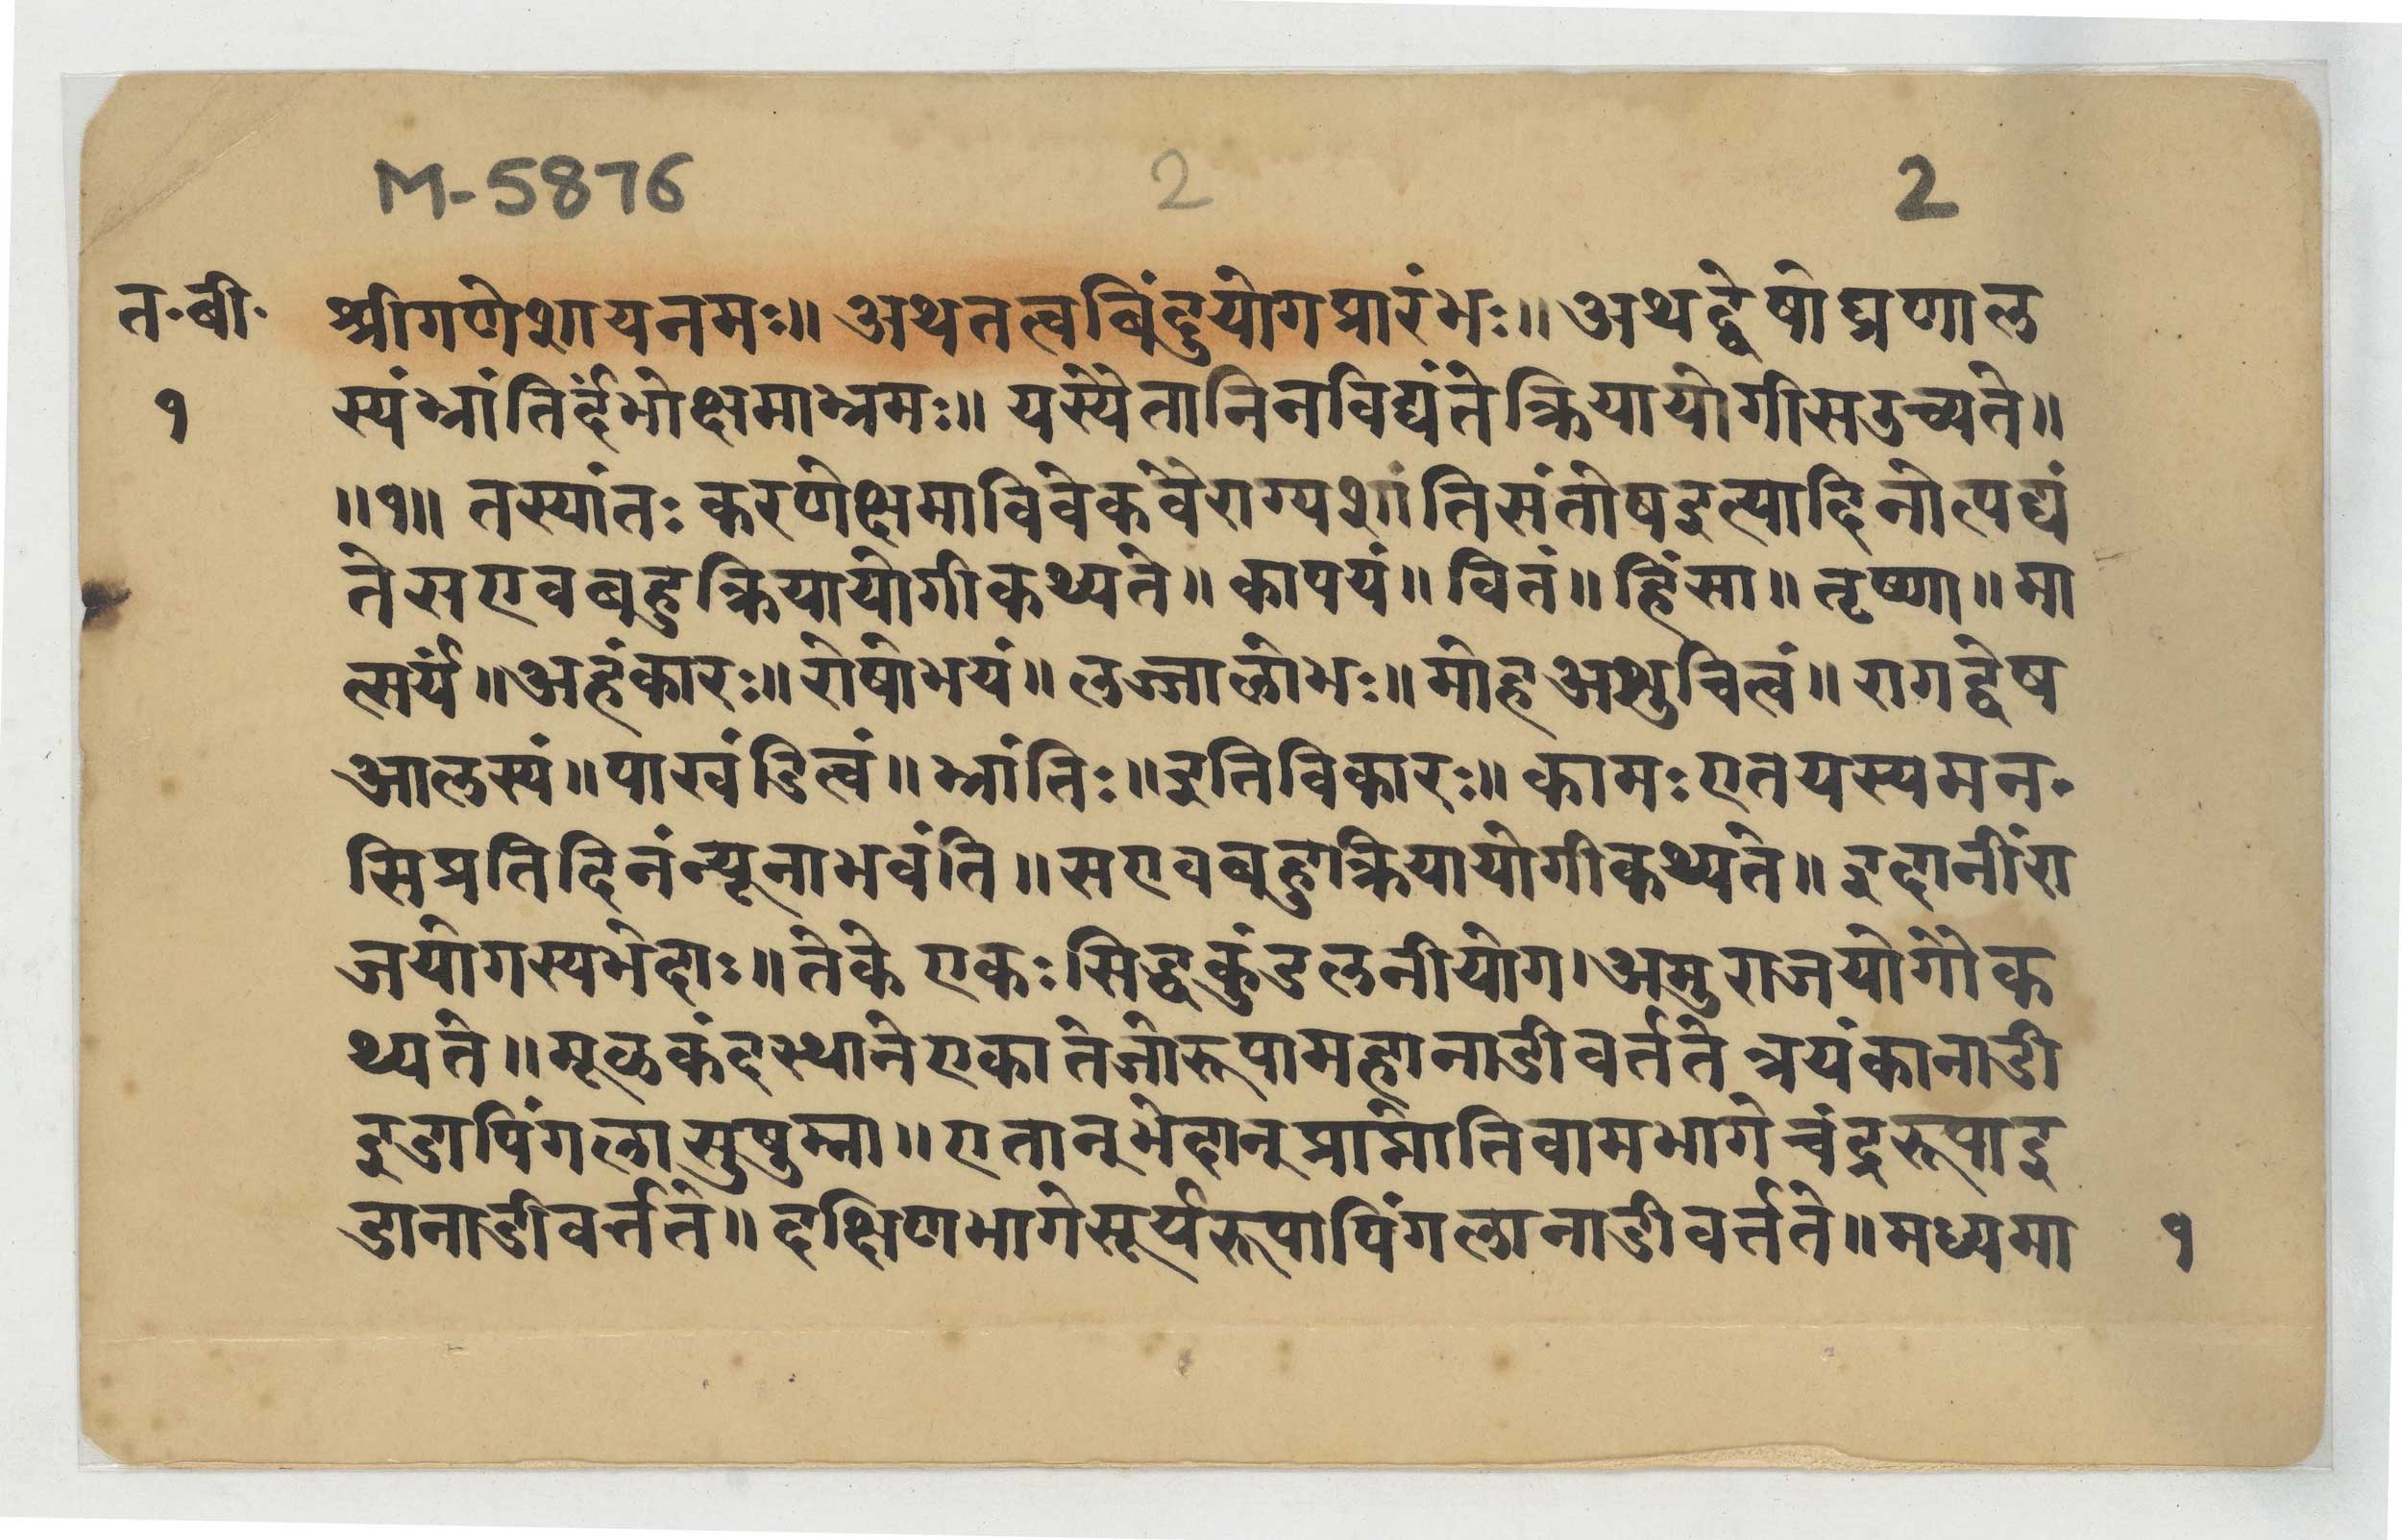 M-5876 2 2
त॰बी॰ श्रीगणेशायनमः॥ अथतत्वबिंदुयोगप्रारंभः॥ अथद्वेषोघ्रणाल
१ स्यंभ्रांतिर्दंभोक्षमाभ्रमः॥ यस्यैतानिनविद्यंतेक्रियायोगीसउच्यते॥
॥१॥ तस्यांतः करणेक्षमाविवेकवैराग्यशांतिसंतोषइत्यादिनोत्पद्यं
तेसएवबहुक्रियायोगीकथ्यते॥ कापयं॥ वितं॥ हिंसा॥ तृष्णा॥ मा
त्सर्यं॥ अहंकारः॥ रोषोभयं॥ लज्जालोभः॥ मोहअशुचित्वं॥ रागद्वेष
आलस्यं॥ पाखंडित्वं॥ भ्रांतिः॥ इतिविकारः॥ कामःएतयस्यमन॰
सिप्रतिदिनंन्यूनाभवंति॥ सएवबहुक्रियायोगीकथ्यते॥ इदानींरा
जयोगस्यभेदाः॥ तेके एकःसिद्धकुंडलनीयोग। अमुराजयोगौक
थ्यते॥ मूळकंदस्थानेएकातेजोरूपामहानाडीवर्तते त्रयंकानाडी
इडापिंगलासुषुम्ना॥ एतान्भेदान्प्राप्नोतिवामभागेचंद्ररूपाइ
डानाडीवर्त्तते॥ दक्षिणभागेसूर्यरूपापिंगलानाडीवर्त्तते॥ मध्यमा १